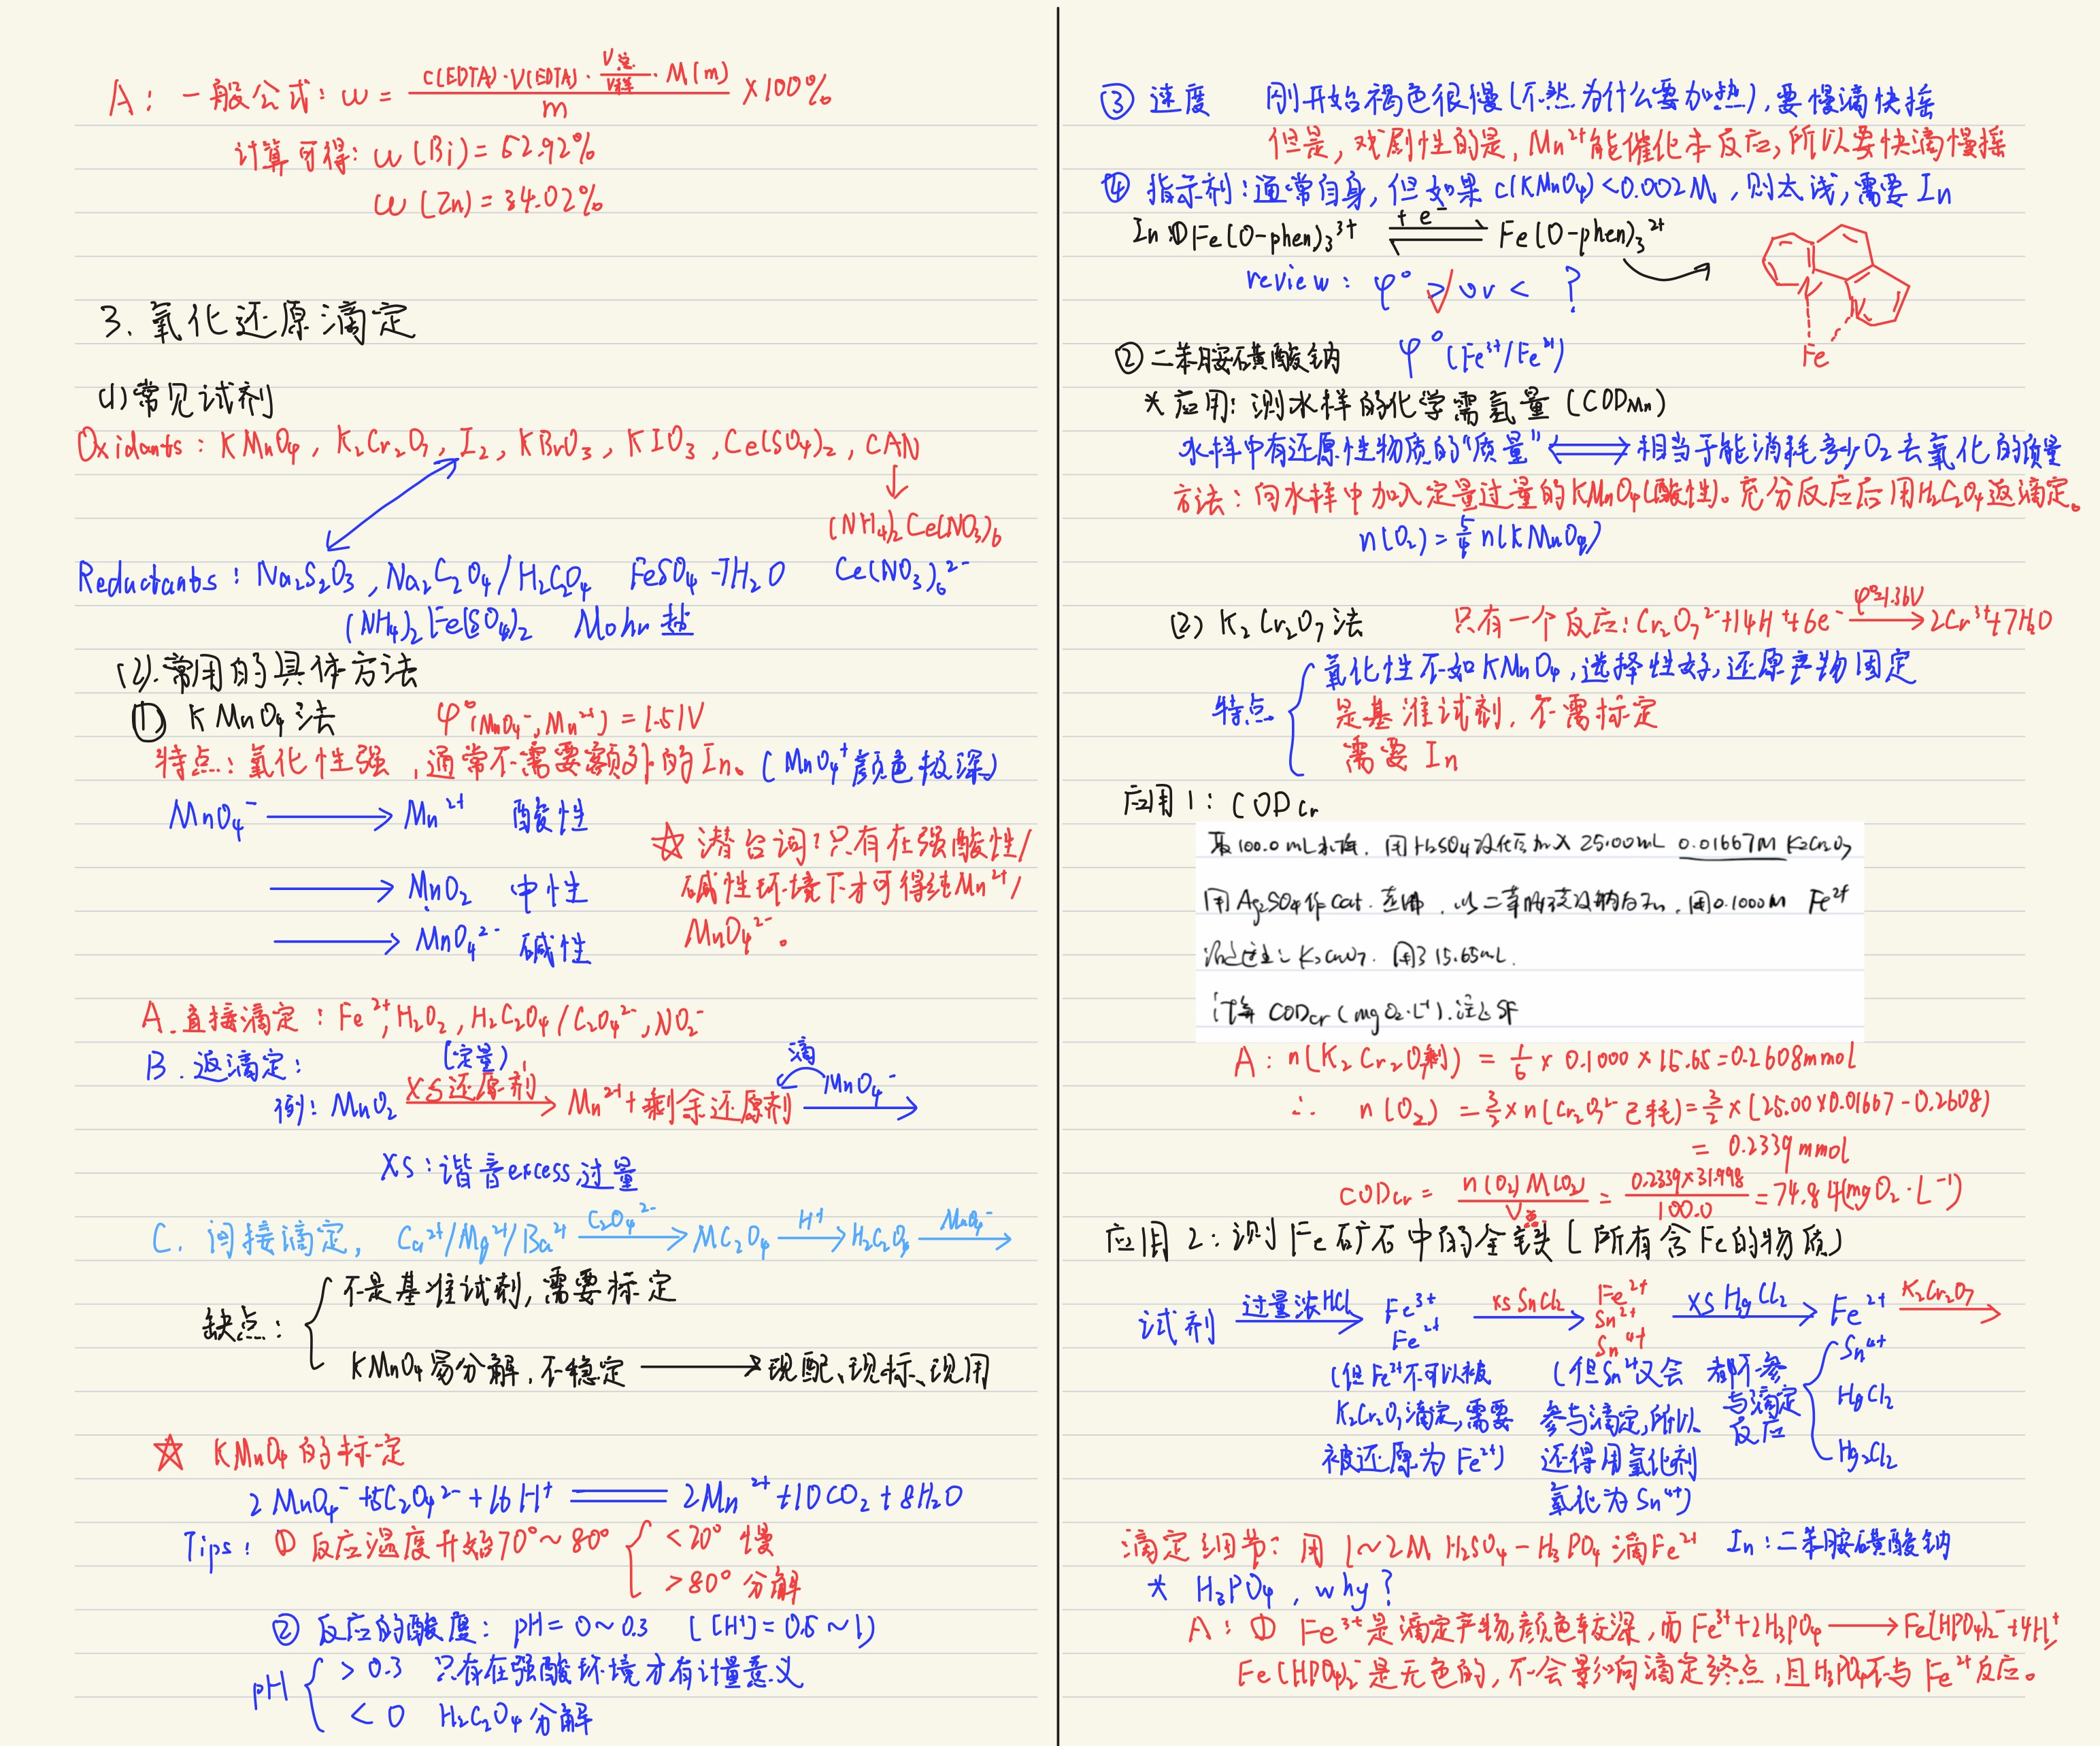 A: 一般公式: w = c(EDTA)·V(EDTA)·V总/V样·M(m) / m ×100%
计算可得: w(Bi) = 52.92%
w(Zn) = 34.02%
3. 氧化还原滴定
(1)常见试剂
Oxidants: KMnO₄, K₂Cr₂O₇, I₂, KBrO₃, KIO₃, Ce(SO₄)₂, CAN
(NH₄)₂Ce(NO₃)₆
Reductants: Na₂S₂O₃, Na₂C₂O₄/H₂C₂O₄ FeSO₄-7H₂O Ce(NO₃)₆²⁻
(NH₄)₂Fe(SO₄)₂ Mohr盐
(2).常用的具体方法
① KMnO₄法 φ°(MnO₄⁻, Mn²⁺) = 1.51V
特点: 氧化性强, 通常不需要额外的In。(MnO₄⁺颜色极深)
MnO₄⁻ ⟶ Mn²⁺ 酸性
⟶ MnO₂ 中性
⟶ MnO₄²⁻ 碱性
☆ 潜台词: 只有在强酸性/
碱性环境下才可得纯Mn²⁺/
MnO₄²⁻。
A.直接滴定: Fe²⁺, H₂O₂, H₂C₂O₄/C₂O₄²⁻, NO₂⁻
B.返滴定: (定量) 滴
例: MnO₂ XS还原剂⟶ Mn²⁺+剩余还原剂 MnO₄⁻⟶
XS: 谐音excess,过量
C. 间接滴定, Ca²⁺/Mg²⁺/Ba²⁺ C₂O₄²⁻⟶ MC₂O₄ H⁺⟶ H₂C₂O₄ MnO₄⁻⟶
缺点:
不是基准试剂, 需要标定
KMnO₄易分解, 不稳定 ⟶ 现配、现标、现用
☆ KMnO₄的标定
2MnO₄⁻+5C₂O₄²⁻+16H⁺ ═ 2Mn²⁺+10CO₂+8H₂O
Tips: ① 反应温度开始70°~80° { <70° 慢
>80° 分解
② 反应的酸度: pH=0~0.3 ([H⁺]=0.5~1)
pH { >0.3 只有在强酸环境才有计量意义
<0 H₂C₂O₄分解
③ 速度 刚开始褪色很慢(不然为什么要加热), 要慢滴快摇
但是, 戏剧性的是, Mn²⁺能催化本反应, 所以要快滴慢摇
④ 指示剂: 通常自身, 但如果 c(KMnO₄)<0.002M, 则太浅, 需要In
In:①Fe(O-phen)₃³⁺ +e⁻⇌ Fe(O-phen)₃²⁺
review: φ° > or < ?
Fe
②二苯胺磺酸钠 φ°(Fe³⁺/Fe²⁺)
* 应用: 测水样的化学需氧量(CODMn)
水样中有还原性物质的"质量" ⟺ 相当于能消耗多少O₂去氧化的质量
方法: 向水样中加入定量过量的KMnO₄(酸性)。充分反应后用H₂C₂O₄返滴定。
n(O₂) = 5/4 n(KMnO₄)
(2) K₂Cr₂O₇法 只有一个反应: Cr₂O₇²⁻+14H⁺+6e⁻ φ°=1.36V⟶ 2Cr³⁺+7H₂O
特点
氧化性不如KMnO₄, 选择性好, 还原产物固定
是基准试剂, 不需标定
需要In
应用1: CODcr
取100.0mL水样, 用H₂SO₄酸化后加入25.00mL 0.01667M K₂Cr₂O₇
用Ag₂SO₄作cat. 煮沸, 以二苯胺磺酸钠为In, 用0.1000M Fe²⁺
滴定过量之K₂Cr₂O₇. 用了15.65mL.
计算CODcr(mgO₂·L⁻¹).注意SF
A: n(K₂Cr₂O₇剩) = 1/6 × 0.1000 × 15.65 = 0.2608mmol
∴ n(O₂) = 3/2 × n(Cr₂O₇²⁻已耗) = 3/2 × (25.00×0.01667-0.2608)
= 0.2339mmol
CODcr = n(O₂)M(O₂)/V总 = 0.2339×31.998/100.0 = 74.84(mgO₂·L⁻¹)
应用2: 测Fe矿石中的全铁(所有含Fe的物质)
试剂 过量浓HCl⟶ Fe³⁺ Fe²⁺ xs SnCl₂⟶ Fe²⁺ Sn²⁺ Sn⁴⁺ XS HgCl₂⟶ Fe²⁺ K₂Cr₂O₇⟶
(但Fe³⁺不可以被
K₂Cr₂O₇滴定,需要
被还原为Fe²⁺)
(但Sn²⁺又会
参与滴定,所以
还得用氧化剂
氧化为Sn⁴⁺)
都不参
与滴定
反应
Sn⁴⁺
HgCl₂
Hg₂Cl₂
滴定细节: 用1~2M H₂SO₄-H₃PO₄滴Fe²⁺ In:二苯胺磺酸钠
* H₃PO₄, why?
A: ① Fe³⁺是滴定产物,颜色较深, 而Fe³⁺+2H₃PO₄ ⟶ Fe(HPO₄)₂⁻+4H⁺,
Fe(HPO₄)₂⁻是无色的, 不会影响滴定终点, 且H₃PO₄不与Fe²⁺反应。